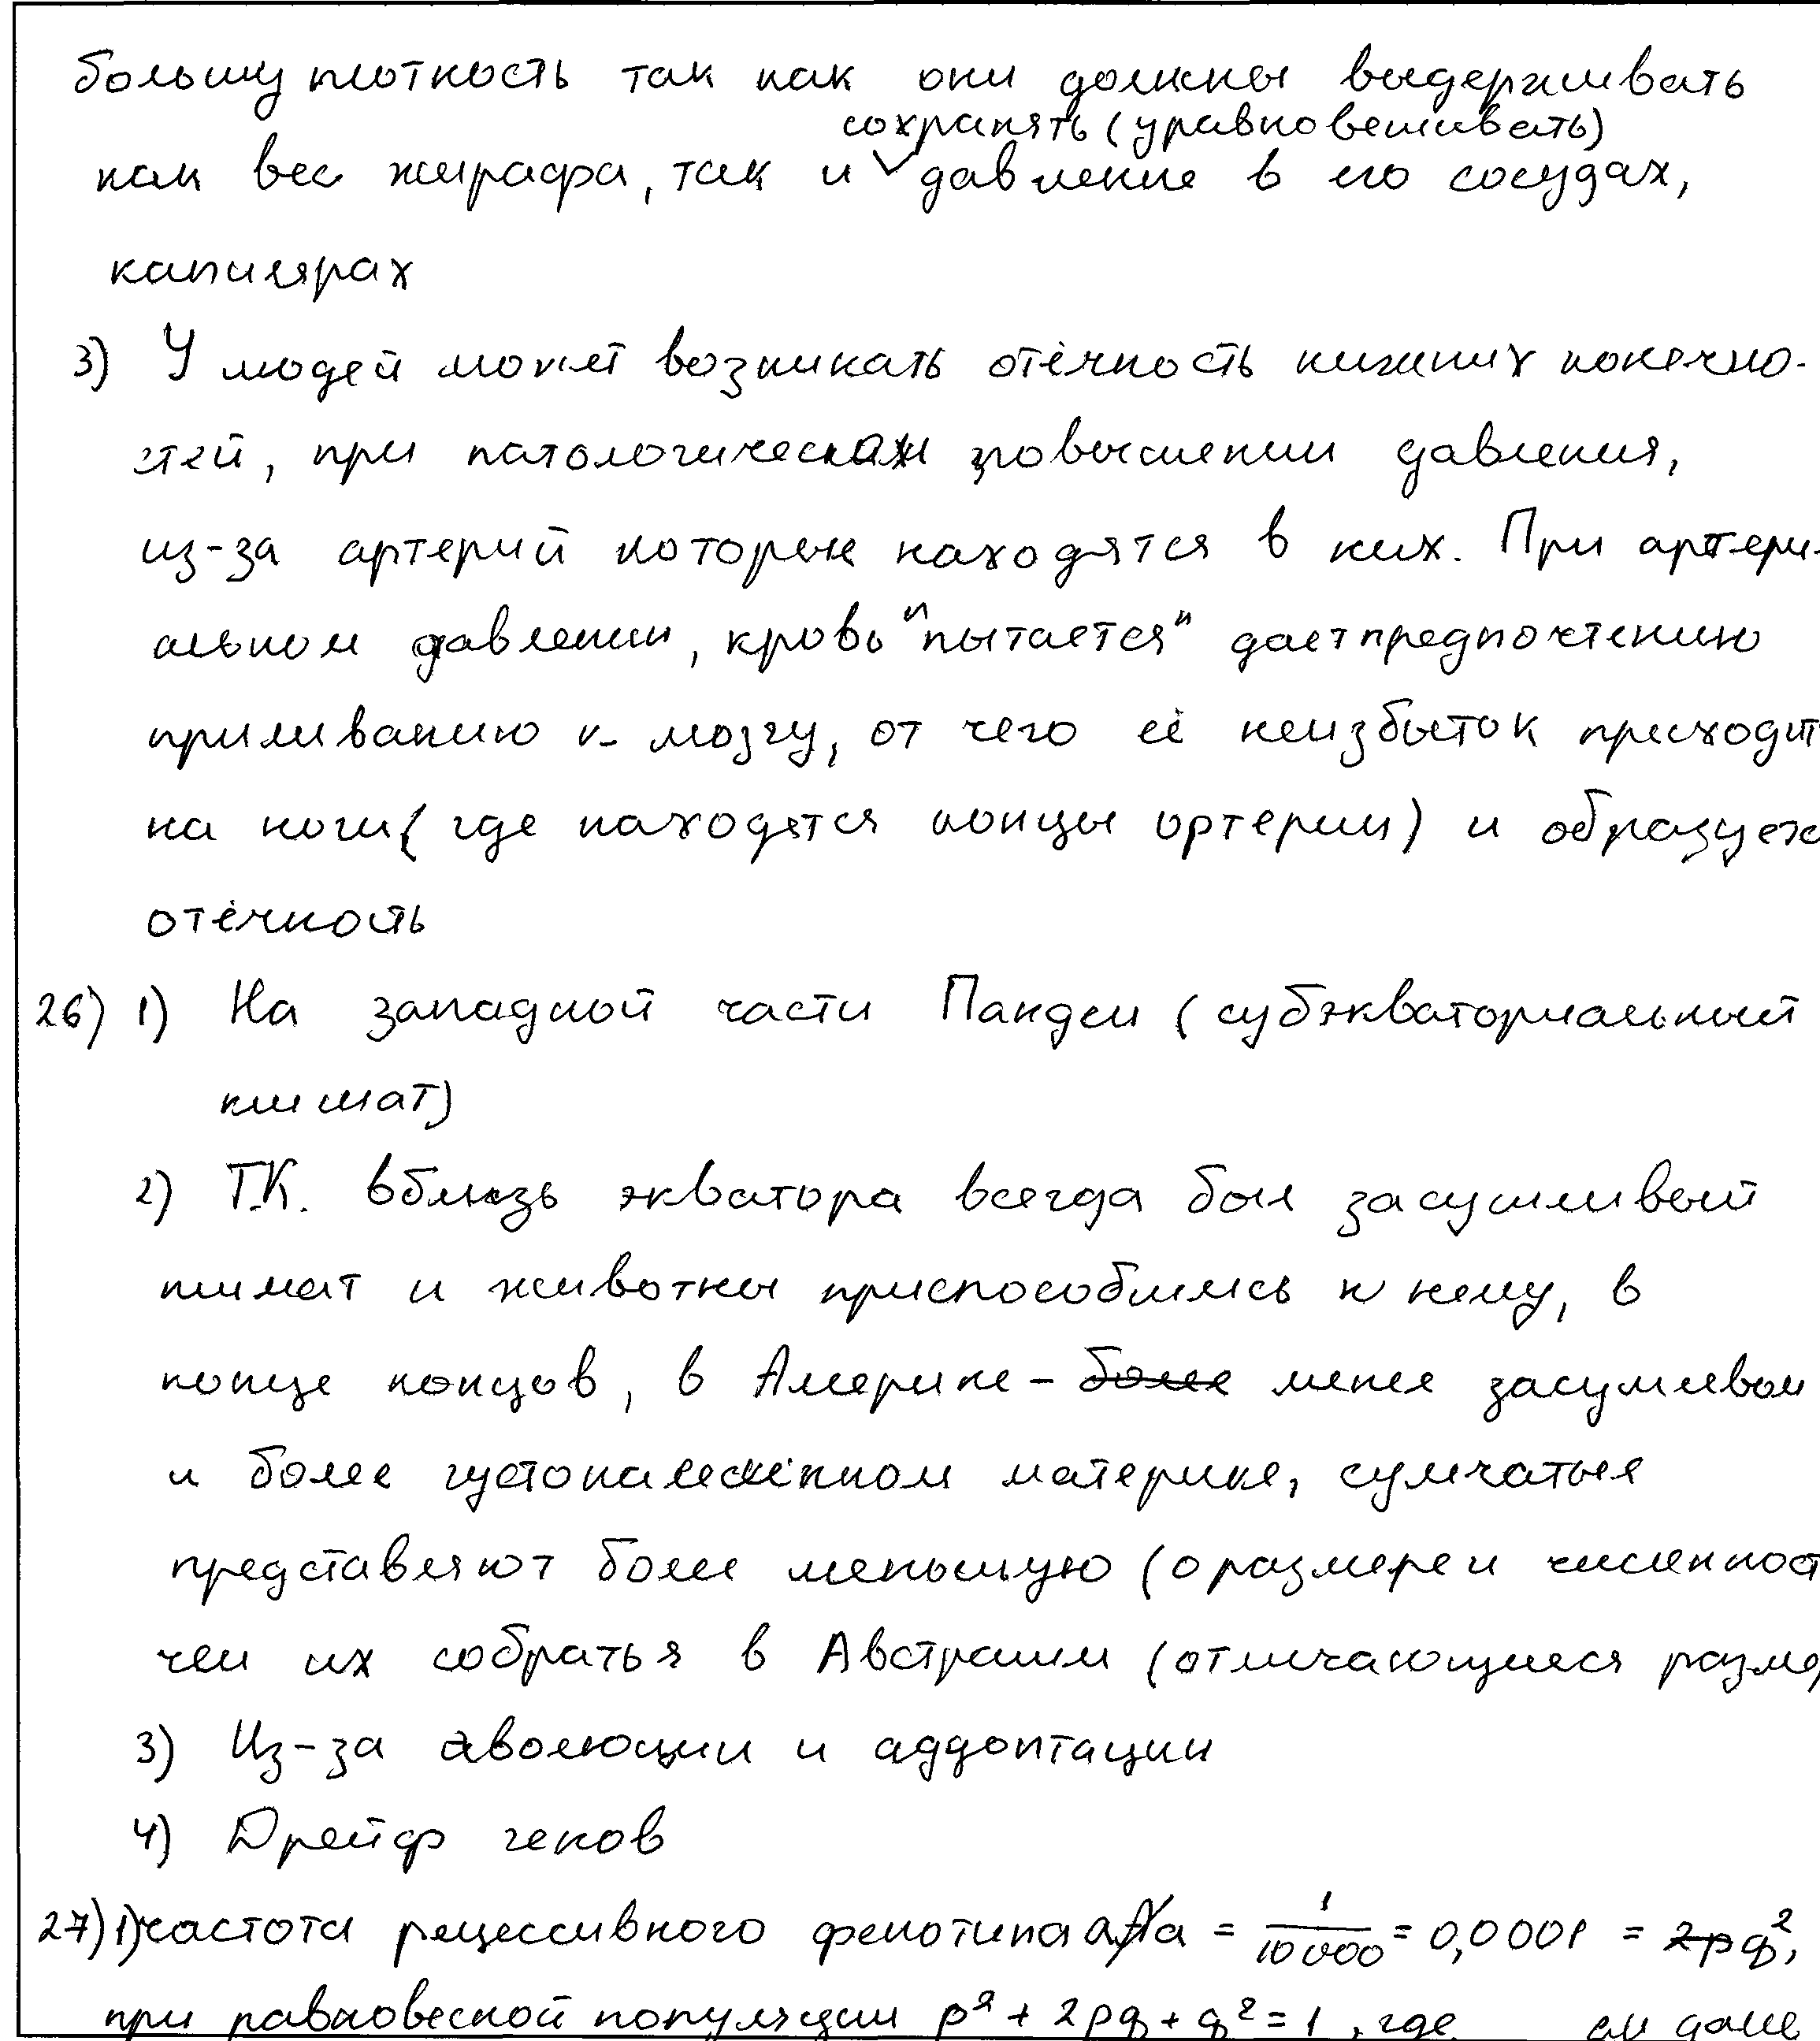 большу плотность так как они должны выдерживать
сохранять (уравновешивать)
как вес жирафа, так и давление в его сосудах,
капилярах
3) У людей может возникать отёчность нижних конечно-
стей, при патологическом повышении давления,
из-за артерий которые находятся в них. При артери-
альном давлении, кровь "пытается" дает предпочтению
приливанию к мозгу, от чего её неизбыток приходит
на ноги (где находятся концы ортерии) и образует
отёчность
26) 1) На западной части Пандеи (субэкваториальный
климат)
2) Т.К. вблизь экватора всегда был засушливый
климат и животны приспособились к нему, в
конце концов, в Америке - более менее засушливом
и более густонаселённом материке, сумчатые
представляют более меньшую (о размере и численност
чем их собратья в Австралии (отличающиеся разме
3) Из-за эволюции и аддоптации
4) Дрейф генов
27) 1) частота рецессивного фенотипа aa = 1/10000 = 0,0001 = 2p q²,
при равновесной популяции p² + 2pq + q² = 1, где см далее